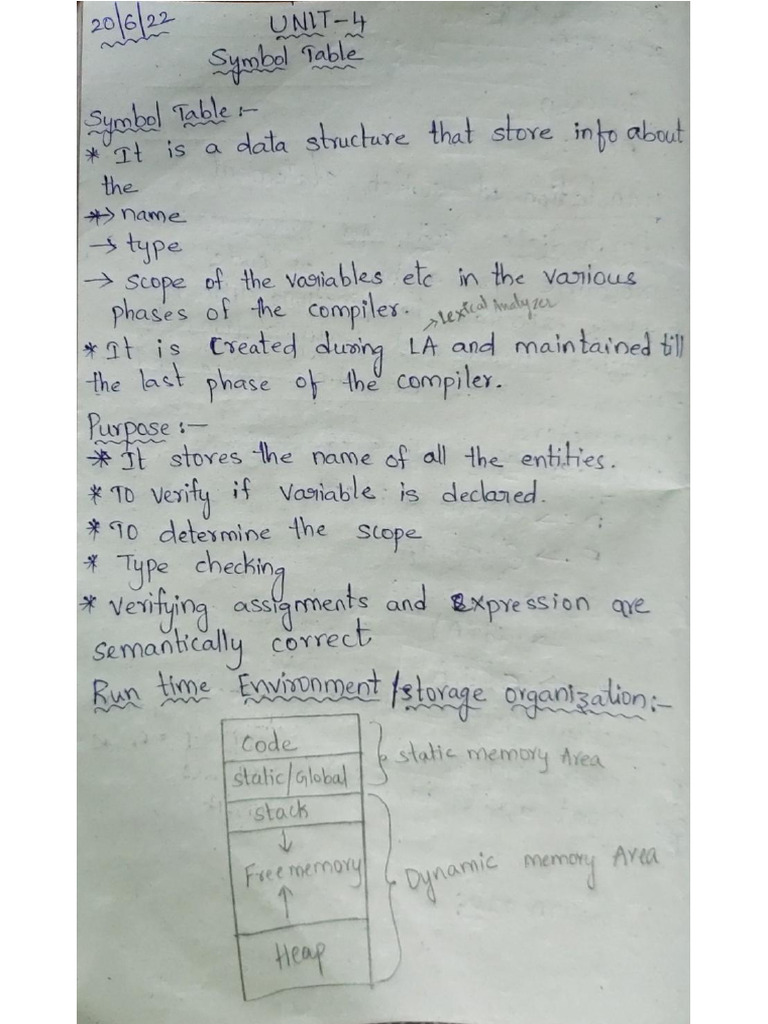 20/6/22
UNIT-4
Symbol Table
Symbol Table :-
* It is a data structure that store info about
the
*→ name
→ type
→ scope of the variables etc in the various
phases of the compiler.
→ Lexical Analyzer
* It is Created during LA and maintained till
the last phase of the compiler.
Purpose :-
* It stores the name of all the entities.
* To verify if variable is declared.
* To determine the scope
* Type checking
* Verifying assignments and Expression are
semantically correct
Run time Environment /storage organization :-
Code
static/Global
static memory Area
stack
↓
Free memory
↑
Dynamic memory Area
Heap